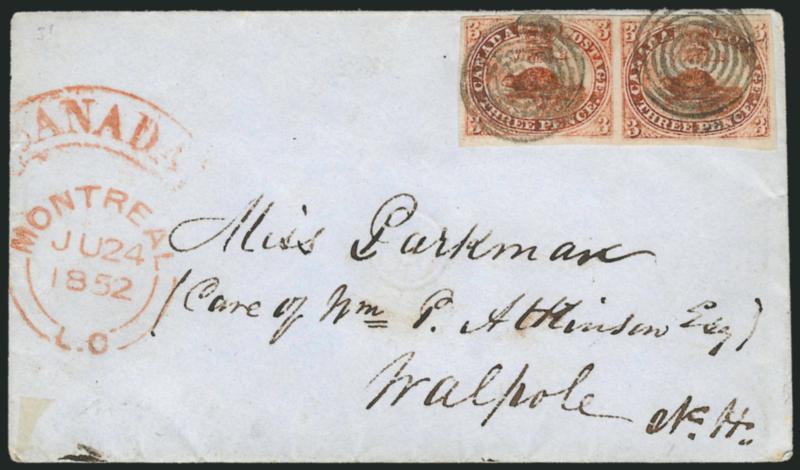 3 CANADA POSTAGE 3
3 THREE PENCE. 3
3 CANADA POSTAGE 3
3 THREE PENCE. 3
CANADA
MONTREAL
JU 24
1852
L.C
Miss Parkman
(Care of Wm P. Atkinson Esq)
Walpole
N. H.